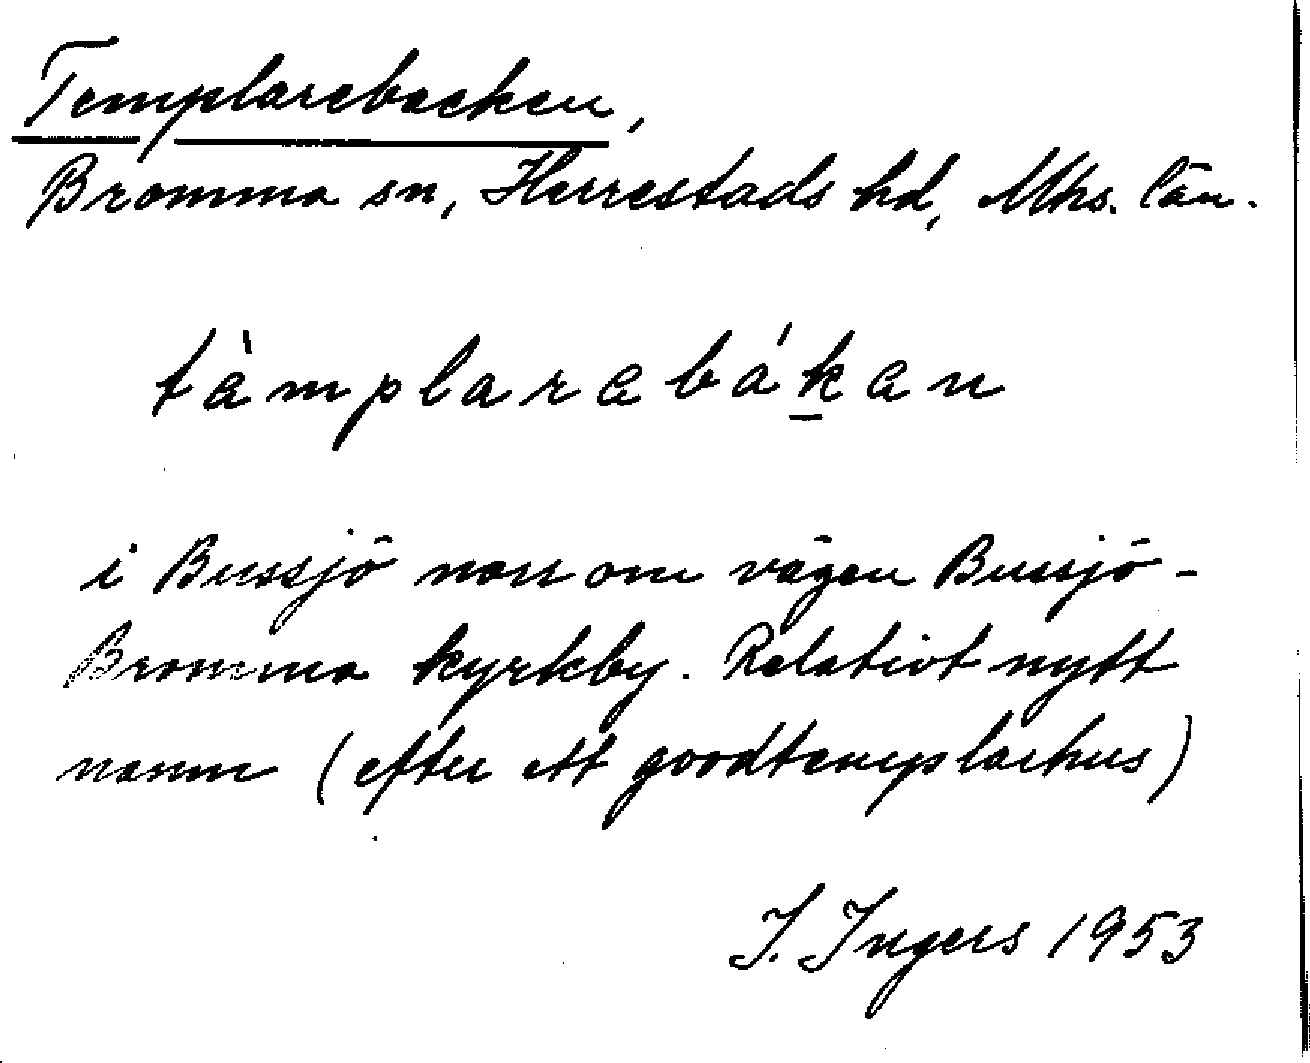 Templarebacken,
Bromma sn, Herrestads hd, Mhs. län.
tàmplarebák̲en
i Bussjö norr om vägen Bussjö-
Bromma kyrkby. Relativt nytt
namn (efter ett goodtemplarhus)
I. Ingers 1953